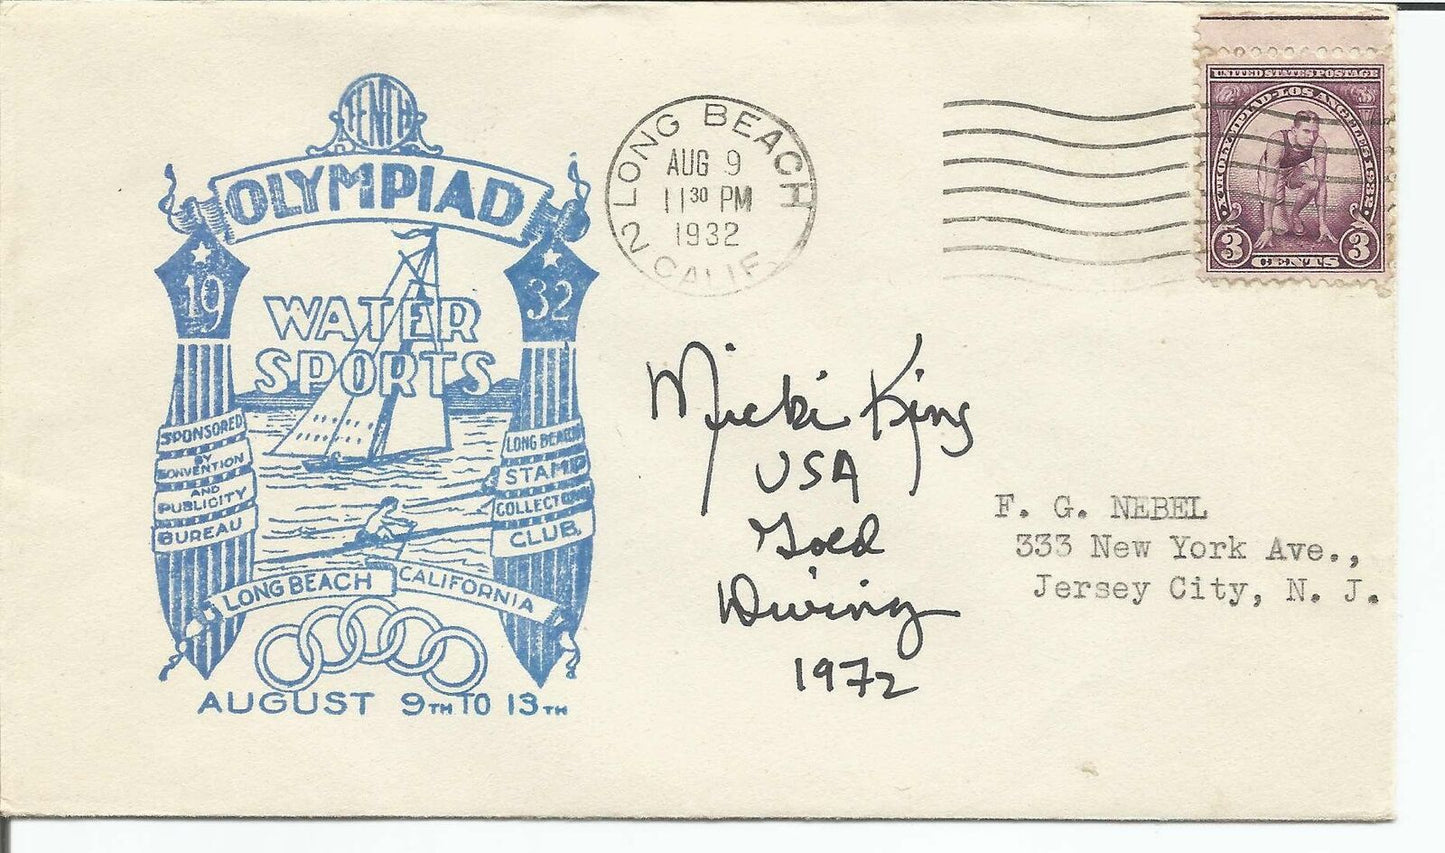 TENTH
OLYMPIAD
1932
WATER
SPORTS
SPONSORED
BY
CONVENTION
AND
PUBLICITY
BUREAU
LONG BEACH
STAMP
COLLECTORS
CLUB.
LONG BEACH CALIFORNIA
AUGUST 9TH TO 13TH
LONG BEACH
AUG 9
11 30 PM
1932
2 CALIF.
UNITED STATES POSTAGE
XTH OLYMPIAD-LOS ANGELES 1932
3 CENTS 3
Micki King
USA
Gold
Diving
1972
F. G. NEBEL
333 New York Ave.,
Jersey City, N. J.